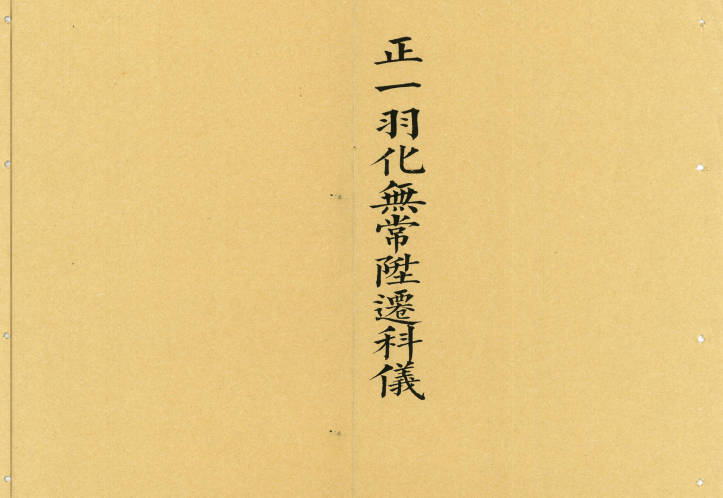 正一羽化無常陞遷科儀